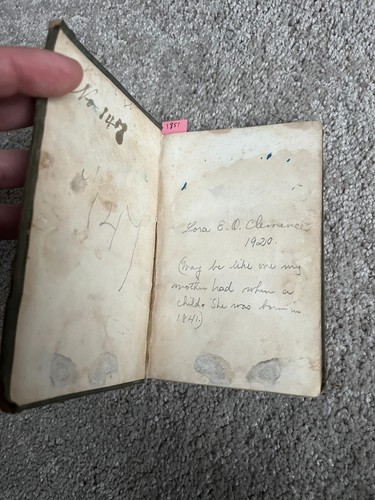 No. 147
1851
147
Lora E. O. Clemence
1920.
(may be like one my
mother had when a
child. She was born in
1841.)